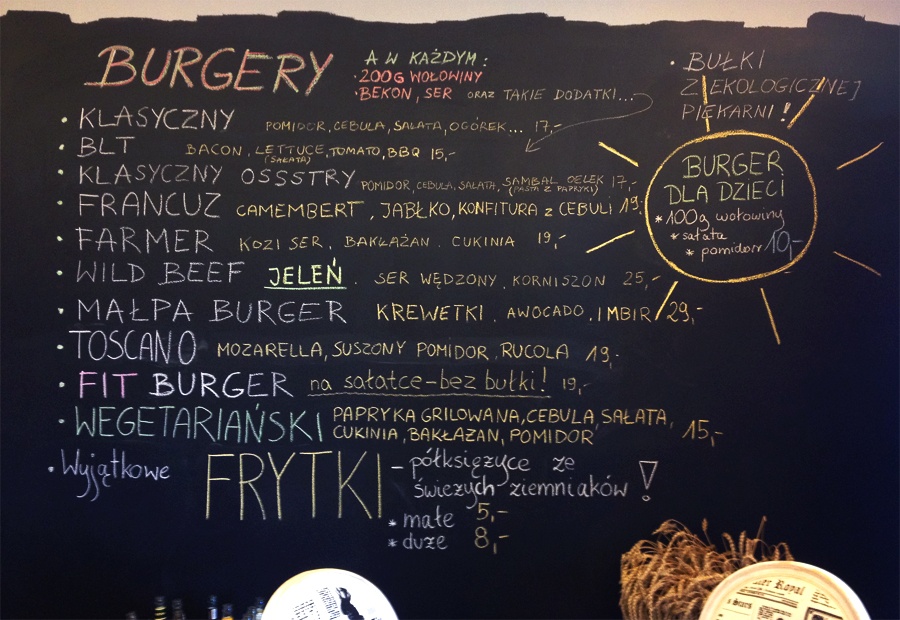 BURGERY
A W KAŻDYM:
• 200G WOŁOWINY
• BEKON, SER ORAZ TAKIE DODATKI...
• BUŁKI
Z EKOLOGICZNEJ
PIEKARNI!
• KLASYCZNY POMIDOR, CEBULA, SAŁATA, OGÓREK... 17,-
• BLT BACON, LETTUCE, TOMATO, BBQ 15,-
(SAŁATA)
• KLASYCZNY OSSSTRY POMIDOR, CEBULA, SAŁATA, SAMBAL OELEK 17,-
(PASTA Z PAPRYKI)
• FRANCUZ CAMEMBERT, JABŁKO, KONFITURA z CEBULI 19,-
• FARMER KOZI SER, BAKŁAŻAN, CUKINIA 19,-
• WILD BEEF JELEŃ, SER WĘDZONY, KORNISZON 25,-
• MAŁPA BURGER KREWETKI, AWOCADO, IMBIR 29,-
• TOSCANO MOZARELLA, SUSZONY POMIDOR, RUCOLA 19,-
• FIT BURGER na sałatce - bez bułki! 19,-
• WEGETARIAŃSKI PAPRYKA GRILOWANA, CEBULA, SAŁATA,
CUKINIA, BAKŁAŻAN, POMIDOR 15,-
• Wyjątkowe FRYTKI - półksiężyce ze
świeżych ziemniaków!
* małe 5,-
* duże 8,-
BURGER
DLA DZIECI
* 100g wołowiny
* sałata
* pomidor 10,-